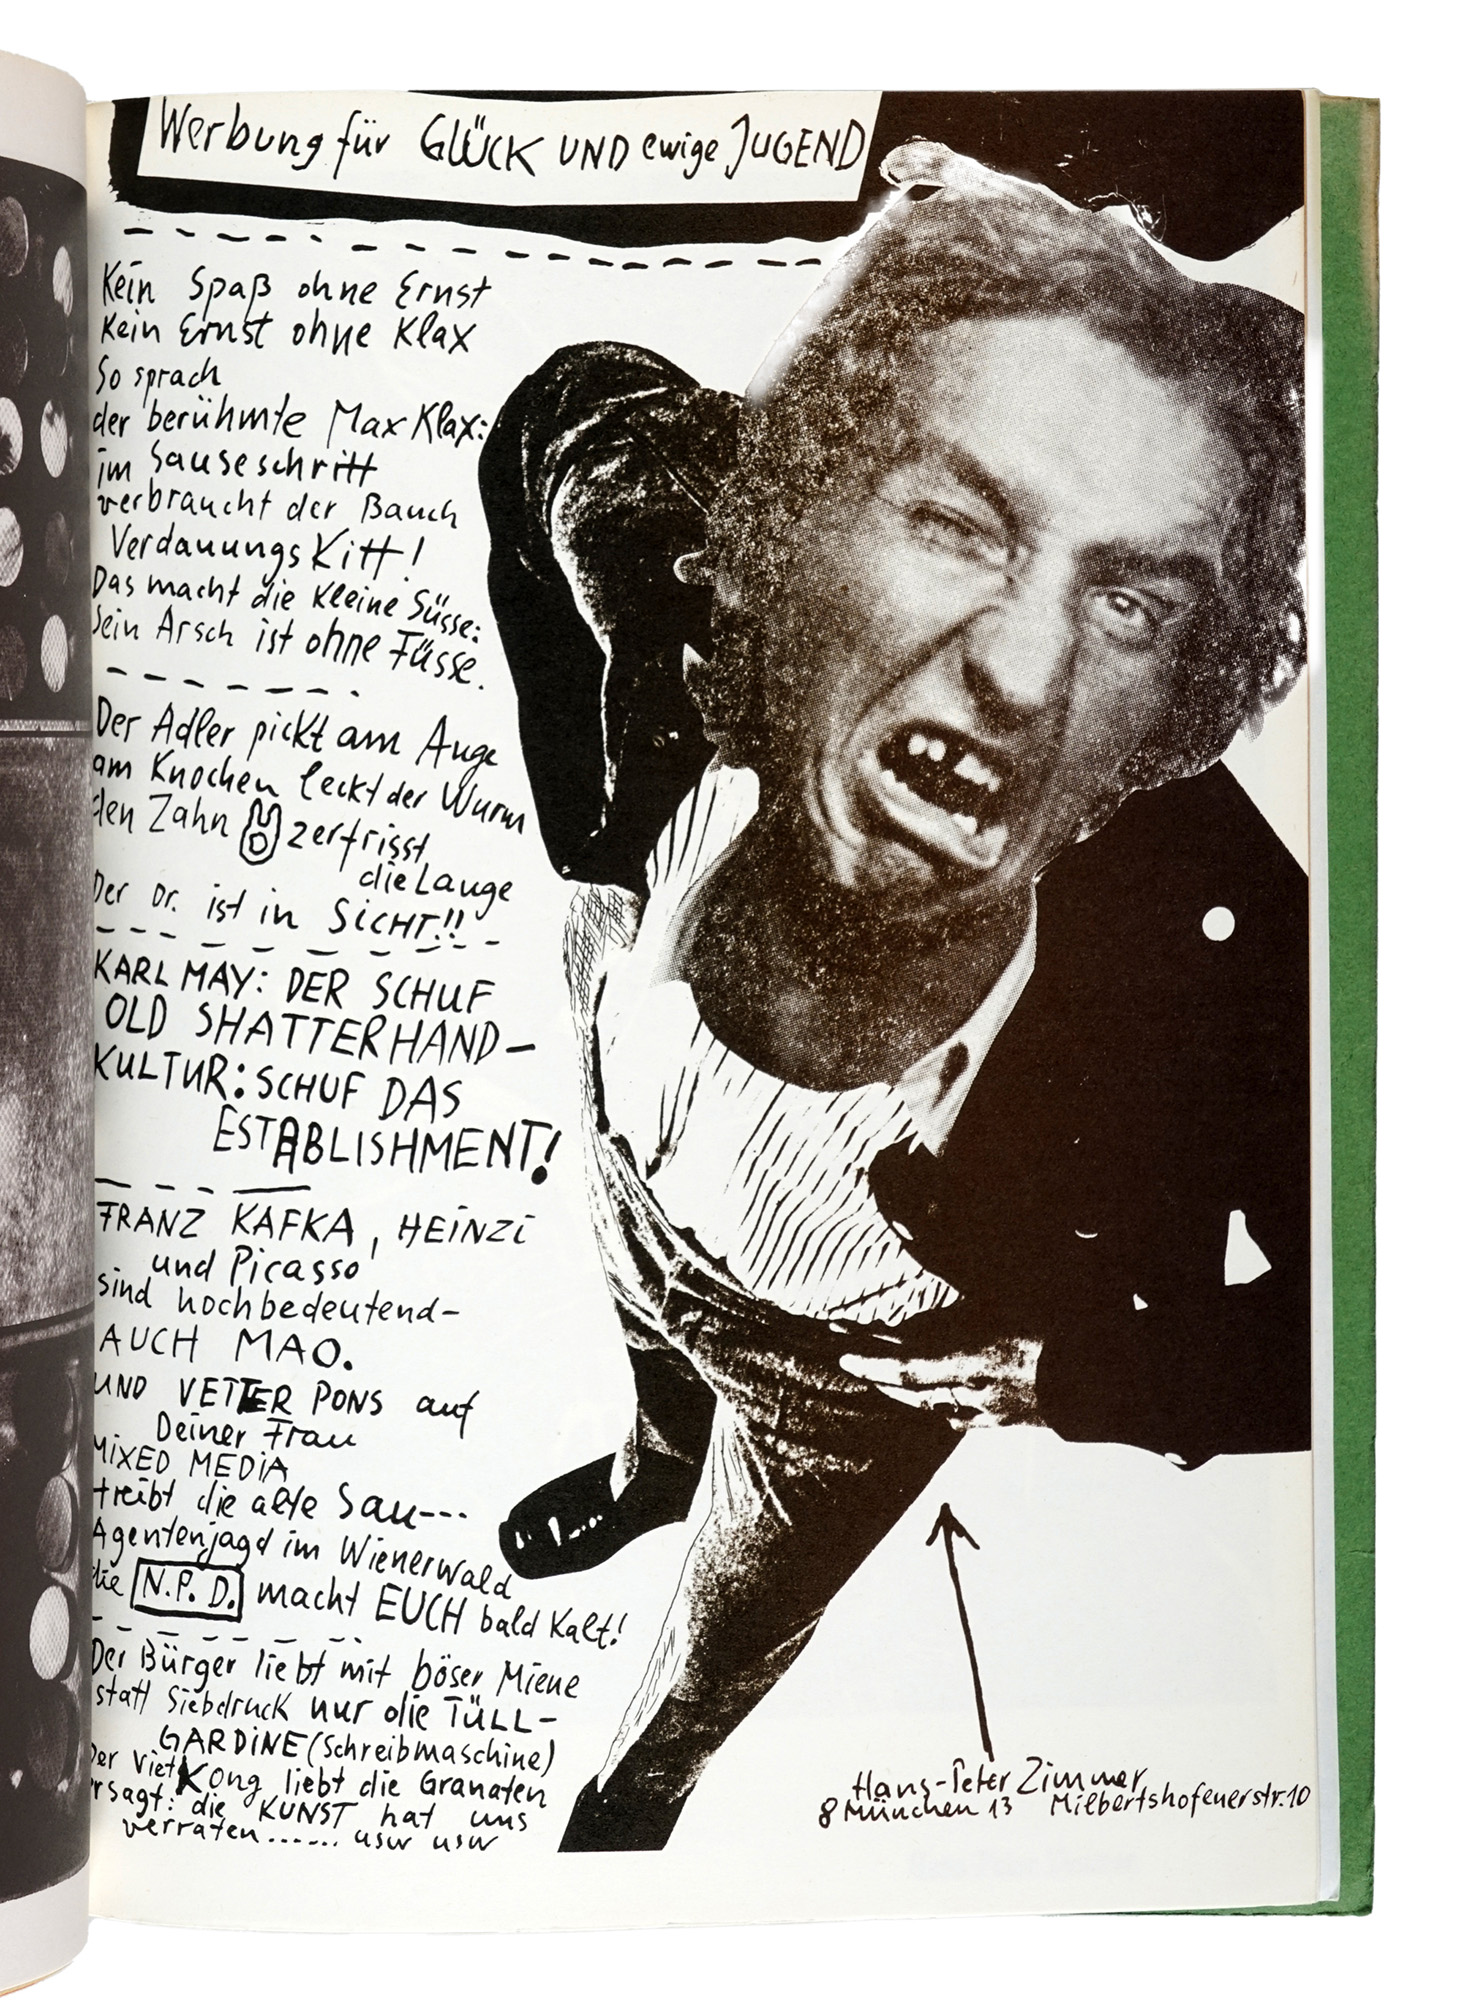 Werbung für GLÜCK UND ewige JUGEND
Kein Spaß ohne Ernst
Kein Ernst ohne Klax
So sprach
der berühmte Max Klax:
im Sauseschritt
verbraucht der Bauch
VerdauungsKitt!
Das macht die kleine Süsse:
Sein Arsch ist ohne Füsse.
Der Adler pickt am Auge
am Knochen leckt der Wurm
den Zahn zerfrisst
die Lauge
Der Dr. ist in SICHT!!
KARL MAY: DER SCHUF
OLD SHATTERHAND-
KULTUR: SCHUF DAS
ESTABLISHMENT!
FRANZ KAFKA, HEINZI
und Picasso
sind hochbedeutend-
AUCH MAO.
UND VETTER PONS auf
Deiner Frau
MIXED MEDIA
treibt die alte Sau---
Agentenjagd im Wienerwald
die N.P.D. macht EUCH bald Kalt!
Der Bürger liebt mit böser Miene
statt Siebdruck nur die TÜLL-
GARDINE (Schreibmaschine)
Der VietKong liebt die Granaten
er sagt: die KUNST hat uns
verraten...... usw usw
Hans-Peter Zimmer
8 München 13 Milbertshofenerstr. 10